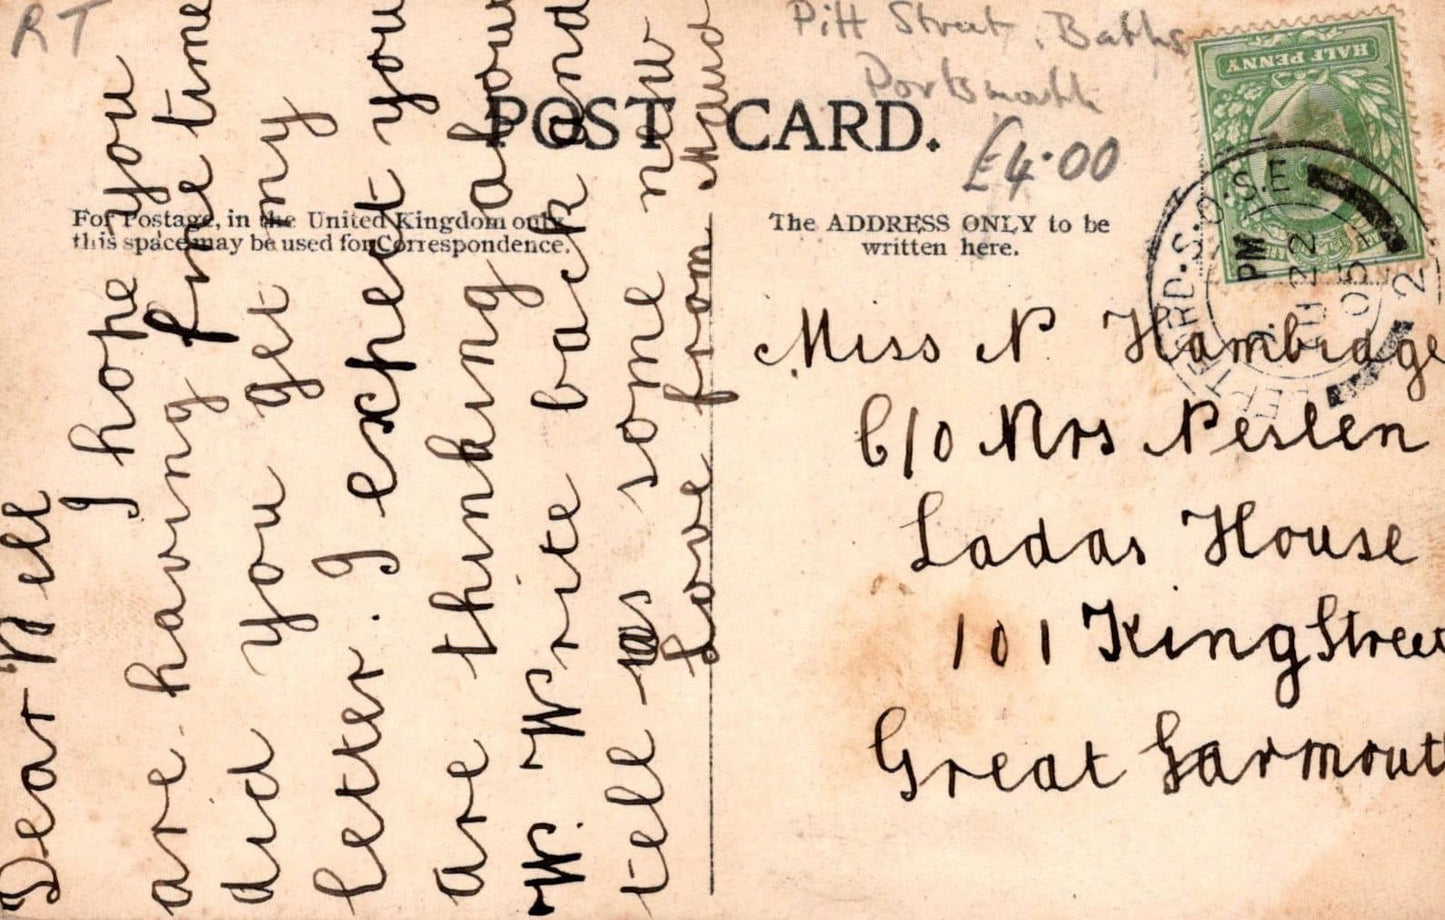 RT
Pitt Street, Baths
Portsmouth
£4.00
POST CARD.
For Postage, in the United Kingdom only
this space may be used for Correspondence.
The ADDRESS ONLY to be
written here.
HALF PENNY
S.O. S.E
PM
22
05
2
Dear Nell
I hope you
are having fine time
did you get my
letter. I expect you
are thinking about
W. Write back and
tell us some new
Love from Maud
Miss N. Hambidge
C/O Mrs Neslen
Ladas House
101 King Street
Great Yarmouth